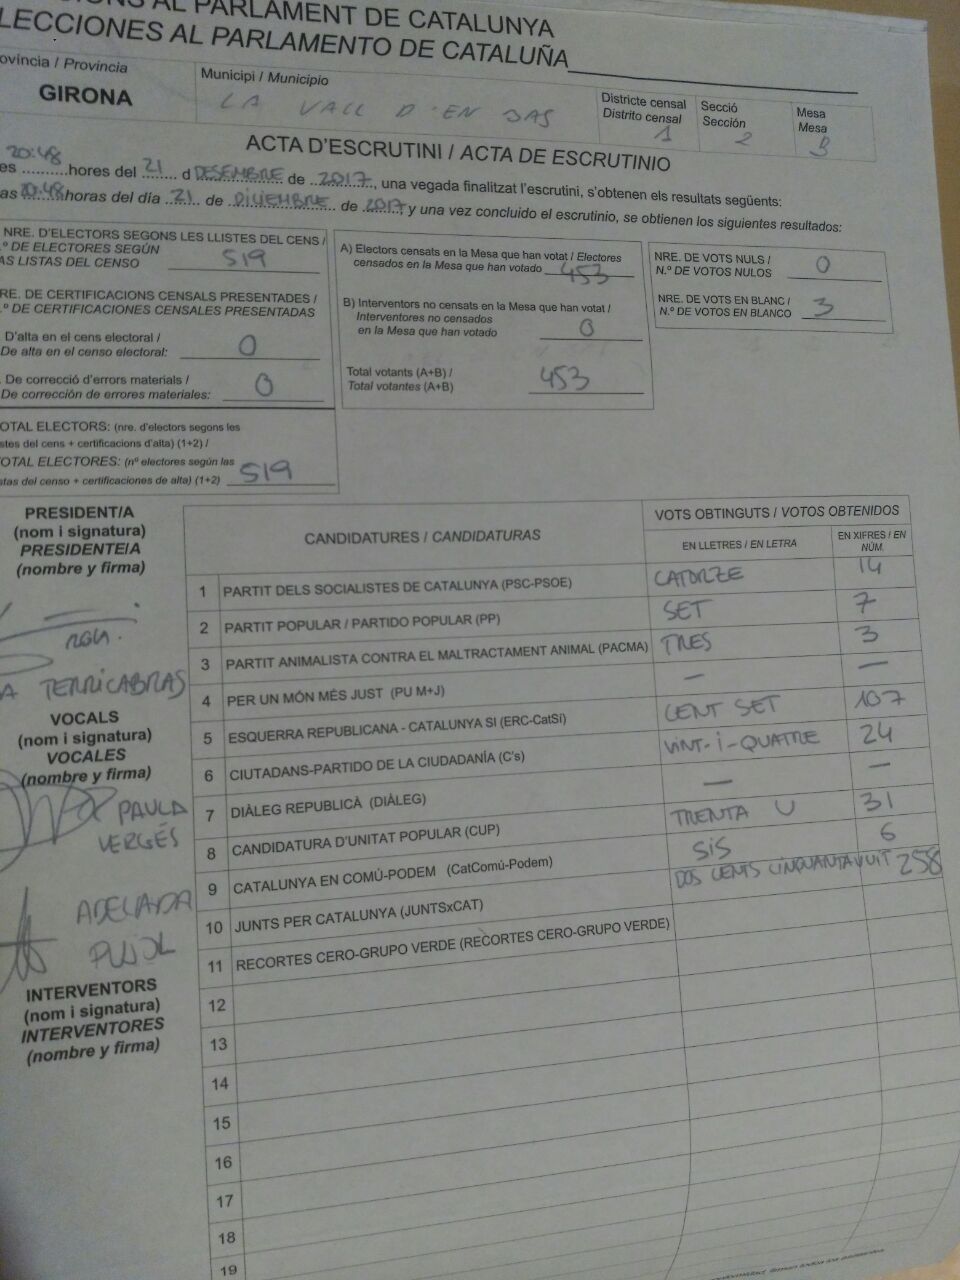 AL PARLAMENT DE CATALUNYA
LECCIONES AL PARLAMENTO DE CATALUÑA
ovíncia / Provincia
GIRONA
Municipi / Municipio
LA VALL D'EN BAS
Districte censal
Distrito censal
1
Secció
Sección
2
Mesa
Mesa
B
ACTA D'ESCRUTINI / ACTA DE ESCRUTINIO
es 20:48 hores del 21 d DESEMBRE de 2017, una vegada finalitzat l'escrutini, s'obtenen els resultats següents:
as 20:48 horas del día 21 de DICIEMBRE de 2017, y una vez concluido el escrutinio, se obtienen los siguientes resultados:
NRE. D'ELECTORS SEGONS LES LLISTES DEL CENS /
.º DE ELECTORES SEGÚN
AS LISTAS DEL CENSO 519
RE. DE CERTIFICACIONS CENSALS PRESENTADES /
.º DE CERTIFICACIONES CENSALES PRESENTADAS
D'alta en el cens electoral /
De alta en el censo electoral: 0
. De correcció d'errors materials /
De corrección de errores materiales: 0
OTAL ELECTORS: (nre. d'electors segons les
stes del cens + certificacions d'alta) (1+2) /
OTAL ELECTORES: (nº electores según las
stas del censo + certificaciones de alta) (1+2) 519
A) Electors censats en la Mesa que han votat / Electores
censados en la Mesa que han votado 453
B) Interventors no censats en la Mesa que han votat /
Interventores no censados
en la Mesa que han votado 0
Total votants (A+B) /
Total votantes (A+B) 453
NRE. DE VOTS NULS /
N.º DE VOTOS NULOS 0
NRE. DE VOTS EN BLANC /
N.º DE VOTOS EN BLANCO 3
PRESIDENT/A
(nom i signatura)
PRESIDENTE/A
(nombre y firma)
TERRICABRAS
VOCALS
(nom i signatura)
VOCALES
(nombre y firma)
PAULA
VERGÉS
ADELAIDA
PUJOL
INTERVENTORS
(nom i signatura)
INTERVENTORES
(nombre y firma)
CANDIDATURES / CANDIDATURAS
VOTS OBTINGUTS / VOTOS OBTENIDOS
EN LLETRES / EN LETRA
EN XIFRES / EN NÚM.
1 PARTIT DELS SOCIALISTES DE CATALUNYA (PSC-PSOE) CATORZE 14
2 PARTIT POPULAR / PARTIDO POPULAR (PP) SET 7
3 PARTIT ANIMALISTA CONTRA EL MALTRACTAMENT ANIMAL (PACMA) TRES 3
4 PER UN MÓN MÉS JUST (PU M+J) — —
5 ESQUERRA REPUBLICANA - CATALUNYA SI (ERC-CatSí) CENT SET 107
6 CIUTADANS-PARTIDO DE LA CIUDADANÍA (C's) VINT-I-QUATRE 24
7 DIÀLEG REPUBLICÀ (DIÀLEG) — —
8 CANDIDATURA D'UNITAT POPULAR (CUP) TRENTA U 31
9 CATALUNYA EN COMÚ-PODEM (CatComú-Podem) SIS 6
10 JUNTS PER CATALUNYA (JUNTSxCAT) DOS CENTS CINQUANTA VUIT 258
11 RECORTES CERO-GRUPO VERDE (RECORTES CERO-GRUPO VERDE)
12
13
14
15
16
17
18
19